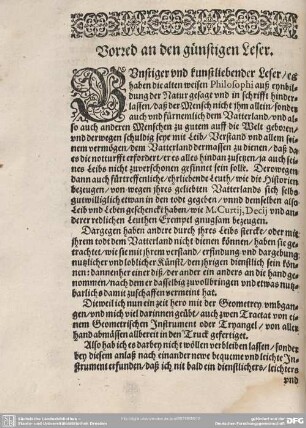 Vorred an den günstigen Leser.
GVnstiger vnd kunstliebender Leser / es
haben die alten weisen Philosophi auß eynbil-
dung der Natur gesagt vnd in schrifft hinder-
lassen / daß der Mensch nicht ihm allein / sonder
auch vnd fürnemlich dem Vatterland / vnd al-
so auch anderen Menschen zu gutem auff die Welt geboren /
vnd derwegen schuldig seye mit Leib / Verstand vnd allem sei-
nem vermögen / dem Vatterland dermassen zu dienen / daß wo
es die notturfft erfordert / er es alles hindan zusetzen / ja auch sei-
nes Leibs nicht zuverschonen gesinnet sein solle. Derowegen
dann auch fürtreffenliche / ehrliebende Leuth / wie die Historien
bezeugen / von wegen ihres geliebten Vatterlands sich selbs
gutwilliglich etwan in den todt gegeben / vnnd demselben also
Leib vnd Leben geschenckt haben / wie M. Curtij, Decij vnd an-
derer redlichen Leuthen Exempel gnugsam bezeugen.
Dargegen haben andere durch ihres Leibs stercke / oder mit
ihrem todt dem Vatterland nicht dienen können / haben sie ge-
trachtet / wie sie mit ihrem verstand / erfindung vnd dargebung
nutzlicher vnd loblicher Künst / den ihrigen dienstlich sein kön-
nen: dannenher einer diß / der ander ein anders an die hand ge-
nommen / nach dem er dasselbig zuvollbringen vnd etwas nutz-
barlichs damit zuschaffen vermeint hat.
Dieweil ich nun ein zeit hero mit der Geometrey vmbgan-
gen / vnd mich viel darinnen geübt / auch zwen Tractat von ei-
nem Geometrischen Instrument oder Tryangel / von aller
hand abmässen allbereit in den Truck gefertiget.
Also hab ich es darbey nicht wöllen verbleiben lassen / sonder
bey diesem anlaß nach einander newe bequeme vnd leichte In-
strument erfunden / daß ich nit bald ein dienstlichers / leichters
vnd